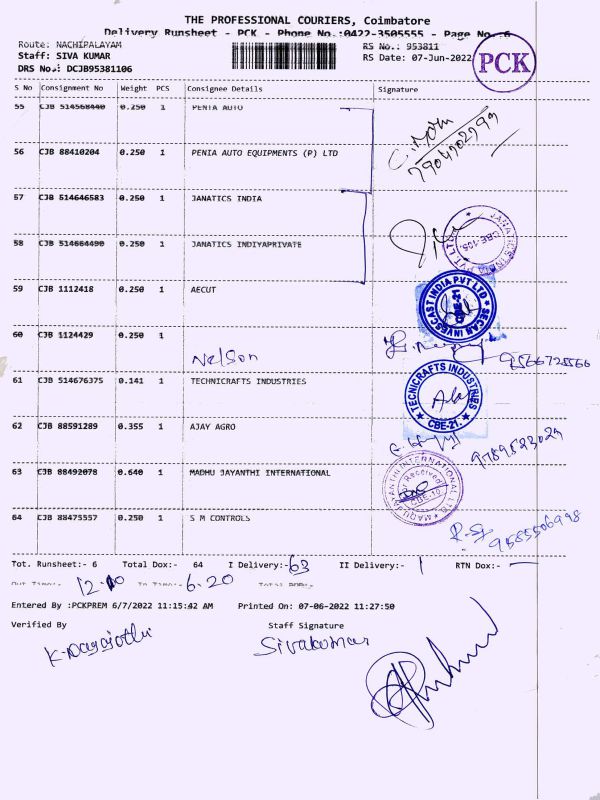 THE PROFESSIONAL COURIERS, Coimbatore
Delivery Runsheet - PCK - Phone No.:0422-3505555 - Page No.:6
Route: NACHIPALAYAM RS No.: 953811
Staff: SIVA KUMAR RS Date: 07-Jun-2022
DRS No.: DCJB95381106
PCK
S No Consignment No Weight PCS Consignee Details Signature
55 CJB 514568440 0.250 1 PENTA AUTO
7904702799
56 CJB 88410204 0.250 1 PENIA AUTO EQUIPMENTS (P) LTD
57 CJB 514646583 0.250 1 JANATICS INDIA
58 CJB 514664490 0.250 1 JANATICS INDIYAPRIVATE
JANATICS INDIA PVT LTD CBE-105.
59 CJB 1112418 0.250 1 AECUT
SECAN INVESCAST INDIA PVT LTD CBE-21
60 CJB 1124429 0.250 1
Nelson
9566725566
61 CJB 514676375 0.141 1 TECHNICRAFTS INDUSTRIES
TECNICRAFTS INDUSTRIES CBE-21.
62 CJB 88591289 0.355 1 AJAY AGRO
9789523029
63 CJB 88492078 0.640 1 MADHU JAYANTHI INTERNATIONAL
MADHU JAYANTHI INTERNATIONAL LTD
64 CJB 88475557 0.250 1 S M CONTROLS
9585506998
Tot. Runsheet:- 6 Total Dox:- 64 I Delivery:- 63 II Delivery:- 1 RTN Dox:- —
Out Time:- 12.10 In Time:- 6.20
Entered By :PCKPREM 6/7/2022 11:15:42 AM Printed On: 07-06-2022 11:27:50
Verified By Staff Signature
K. Nagajothi Sivakumar